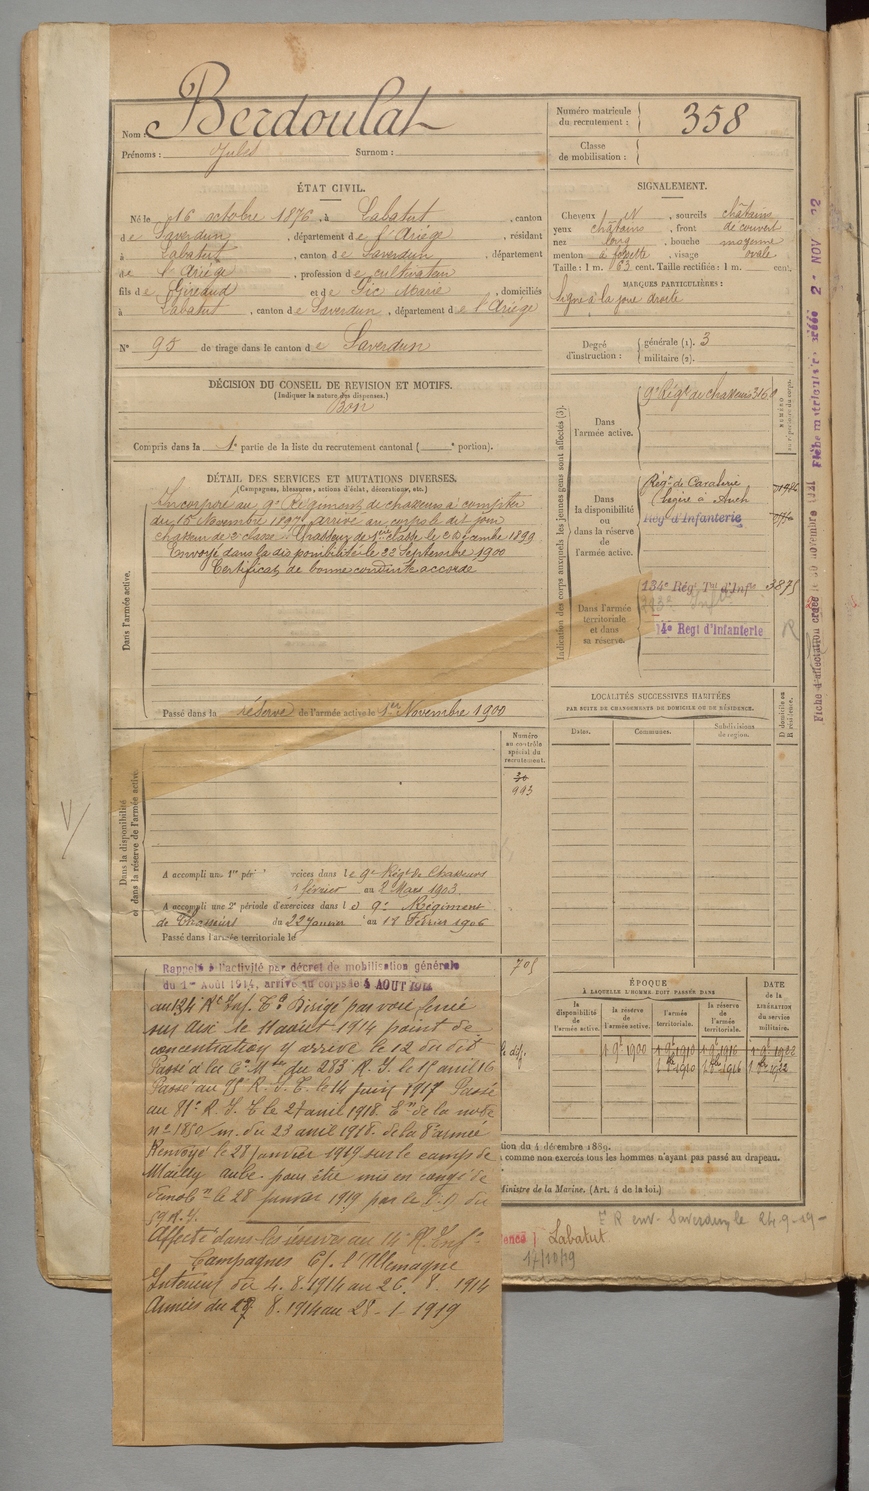 Nom : Berdoulat
Prénoms : Jules Surnom :
Numéro matricule du recrutement : 358
Classe de mobilisation :
ÉTAT CIVIL.
Né le 16 octobre 1876, à Labatut, canton
de Saverdun, département de l'Ariège, résidant
à Labatut, canton de Saverdun, département
de l'Ariège, profession de cultivateur
fils de Giraud et de Gic Marie, domiciliés
à Labatut, canton de Saverdun, département de l'Ariège
N° 95 de tirage dans le canton de Saverdun
SIGNALEMENT.
Cheveux N, sourcils châtains
yeux châtains, front découvert
nez long, bouche moyenne
menton à fossette, visage ovale
Taille : 1 m. 63 cent. Taille rectifiée : 1 m. cent.
MARQUES PARTICULIÈRES :
signe à la joue droite
Degré d'instruction : générale (1). 3
militaire (2).
DÉCISION DU CONSEIL DE REVISION ET MOTIFS.
(Indiquer la nature des dispenses.)
Bon
Compris dans la 1e partie de la liste du recrutement cantonal ( e portion).
DÉTAIL DES SERVICES ET MUTATIONS DIVERSES.
(Campagnes, blessures, actions d'éclat, décorations, etc.)
Dans l'armée active.
Incorporé au 9e Régiment de chasseurs à compter
du 15 Novembre 1897, arrivé au corps le dit jour
chasseur de 2e classe. Chasseur de 1ère classe le 2 Décembre 1899
Envoyé dans la disponibilité le 22 Septembre 1900
Certificat de bonne conduite accordé
Passé dans la réserve de l'armée active le 1er Novembre 1900
Indication des corps auxquels les jeunes gens sont affectés (3).
NUMÉRO
Dans l'armée active.
9e Régt de chasseurs 3160
Dans la disponibilité ou dans la réserve de l'armée active.
Régt de Cavalerie
légère à Auch
Régt d'Infanterie
Dans l'armée territoriale et dans sa réserve.
134e Régt Tal d'Infie 3875
14e Regt d'Infanterie
LOCALITÉS SUCCESSIVES HABITÉES
PAR SUITE DE CHANGEMENTS DE DOMICILE OU DE RÉSIDENCE.
D domicile ou R résidence.
Dates. Communes. Subdivisions de région.
Numéro au contrôle spécial du recrutement.
30
993
Dans la disponibilité et dans la réserve de l'armée active.
A accompli une 1re péri rcices dans le 9e Régt de Chasseurs
février au 8 Mars 1903
A accompli une 2e période d'exercices dans le 9e Régiment
de Chasseurs du 22 Janvier au 17 Février 1906
Passé dans l'armée territoriale le
705
Rappelé à l'activité par décret de mobilisation générale
du 1er Août 1914, arrivé au corps le 4 AOUT 1914
au 134 Rt Inf. Tle Dirigé par voie ferrée
sur Aix le 11 août 1914 point de
concentration y arrivé le 12 du dit
Passé à la Cie Mtse du 283 R. I. le 15 avril 16
Passé au 75e R. I. T. le 14 juin 1917 Passé
au 71e R. I. T. le 27 avril 1918. En de la note
no 1850/m. du 23 avril 1918. de la 8e armée
Renvoyé le 28 janvier 1919 sur le camp de
Mailly aube. pour être mis en congé de
démobn le 28 janvier 1919 par le D. D. du
59 R. I.
Affecté dans les réserves au 14e R. Infie
Campagnes C/. l'Allemagne
Intérieur du 4. 8. 1914 au 26. 8. 1914
Armées du 27 8. 1914 au 28-1-1919
ÉPOQUE
À LAQUELLE L'HOMME DOIT PASSER DANS
DATE de la LIBÉRATION du service militaire.
la disponibilité de l'armée active. la réserve de l'armée active. l'armée territoriale. la réserve de l'armée territoriale.
1 9e 1900 1 9e 1910 1 9e 1916 1 9e 1922
1 8bre 1910 1 8bre 1916
tion du 4 décembre 1889.
comme non exercés tous les hommes n'ayant pas passé au drapeau.
Ministre de la Marine. (Art. 4 de la loi.)
R env. Saverdun, le 24-9-19-
Labatut
17/10/19